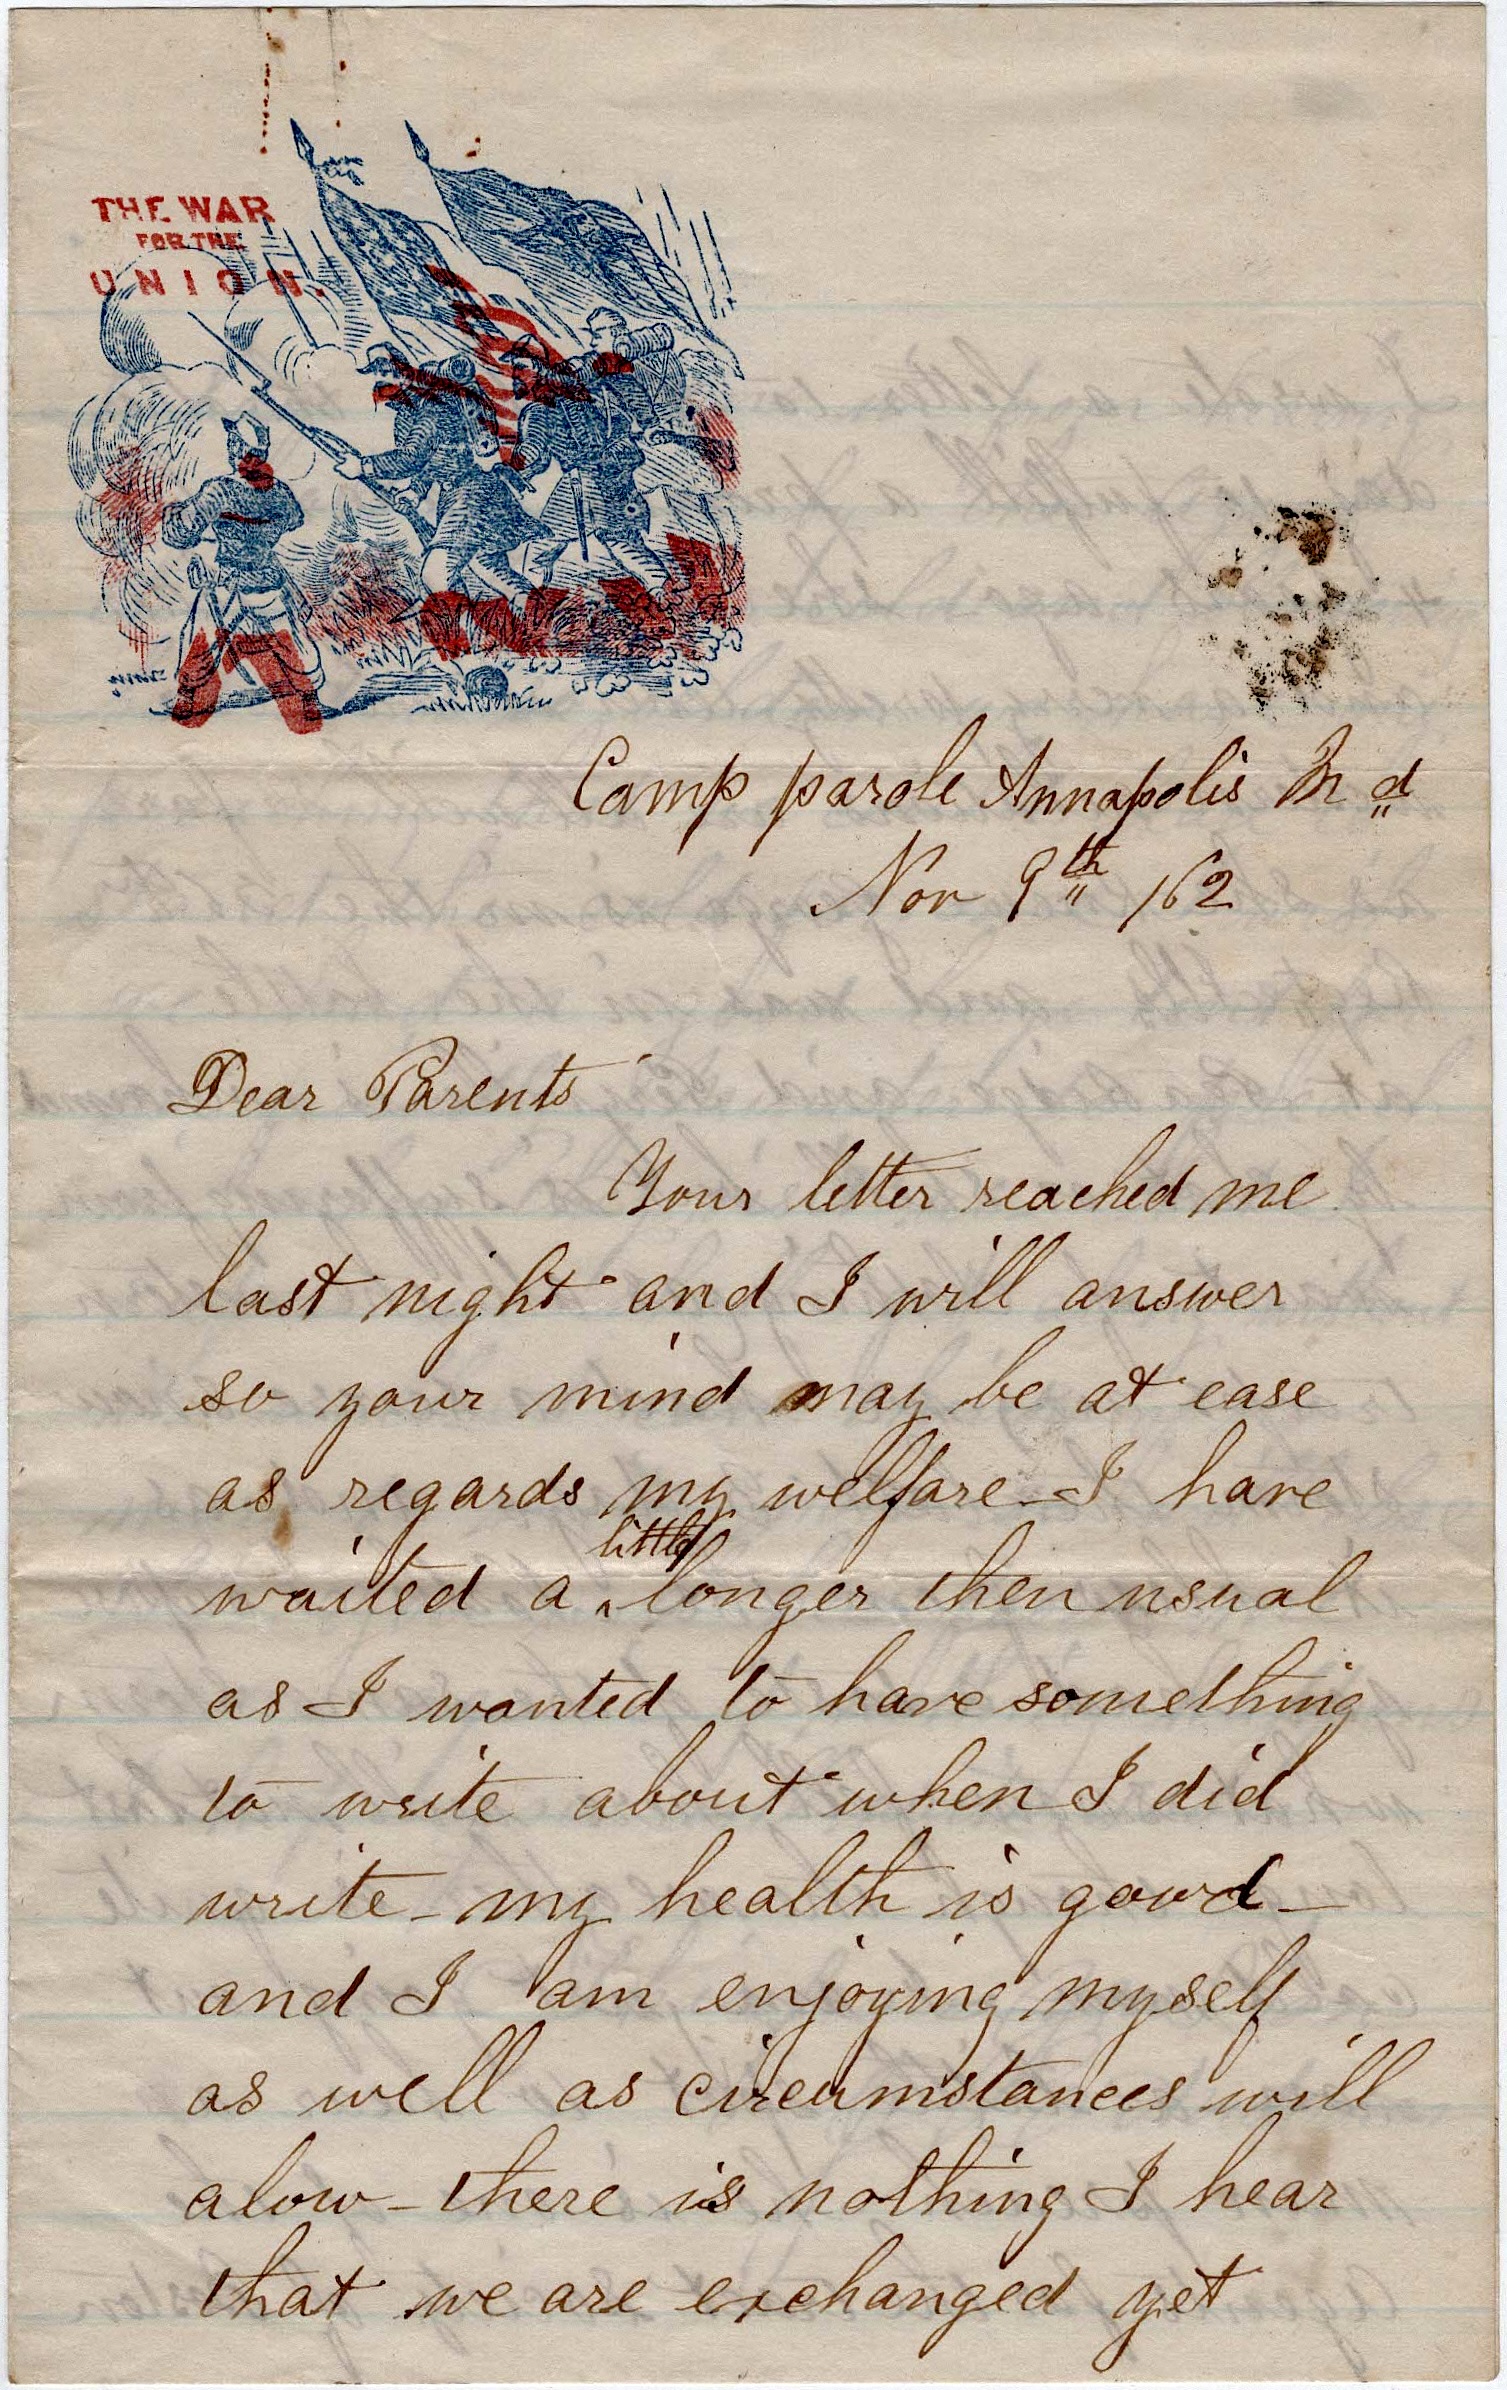 THE WAR
FOR THE
UNION.
Camp parole Annapolis Md
Nov 9th /62
Dear Parents
Your letter reached me
last night and I will answer
so your mind may be at ease
as regards my welfare - I have
waited a little longer then usual
as I wanted to have something
to write about when I did
write - my health is good -
and I am enjoying myself
as well as circumstances will
alow - there is nothing I hear
that we are exchanged yet